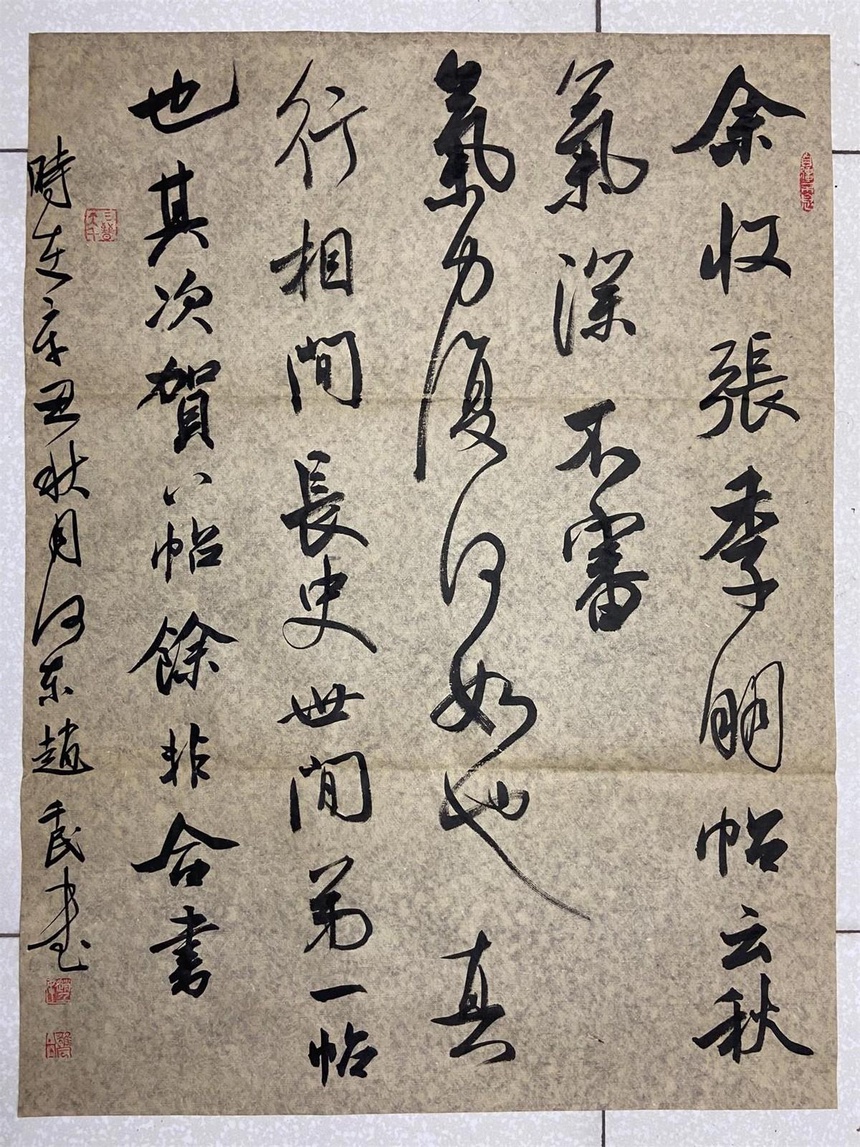 余收張季明帖云秋
氣深不審
氣力復何如也真
行相間長史世間第一帖
也其次賀八帖餘非合書
時在辛丑秋月河東趙民書